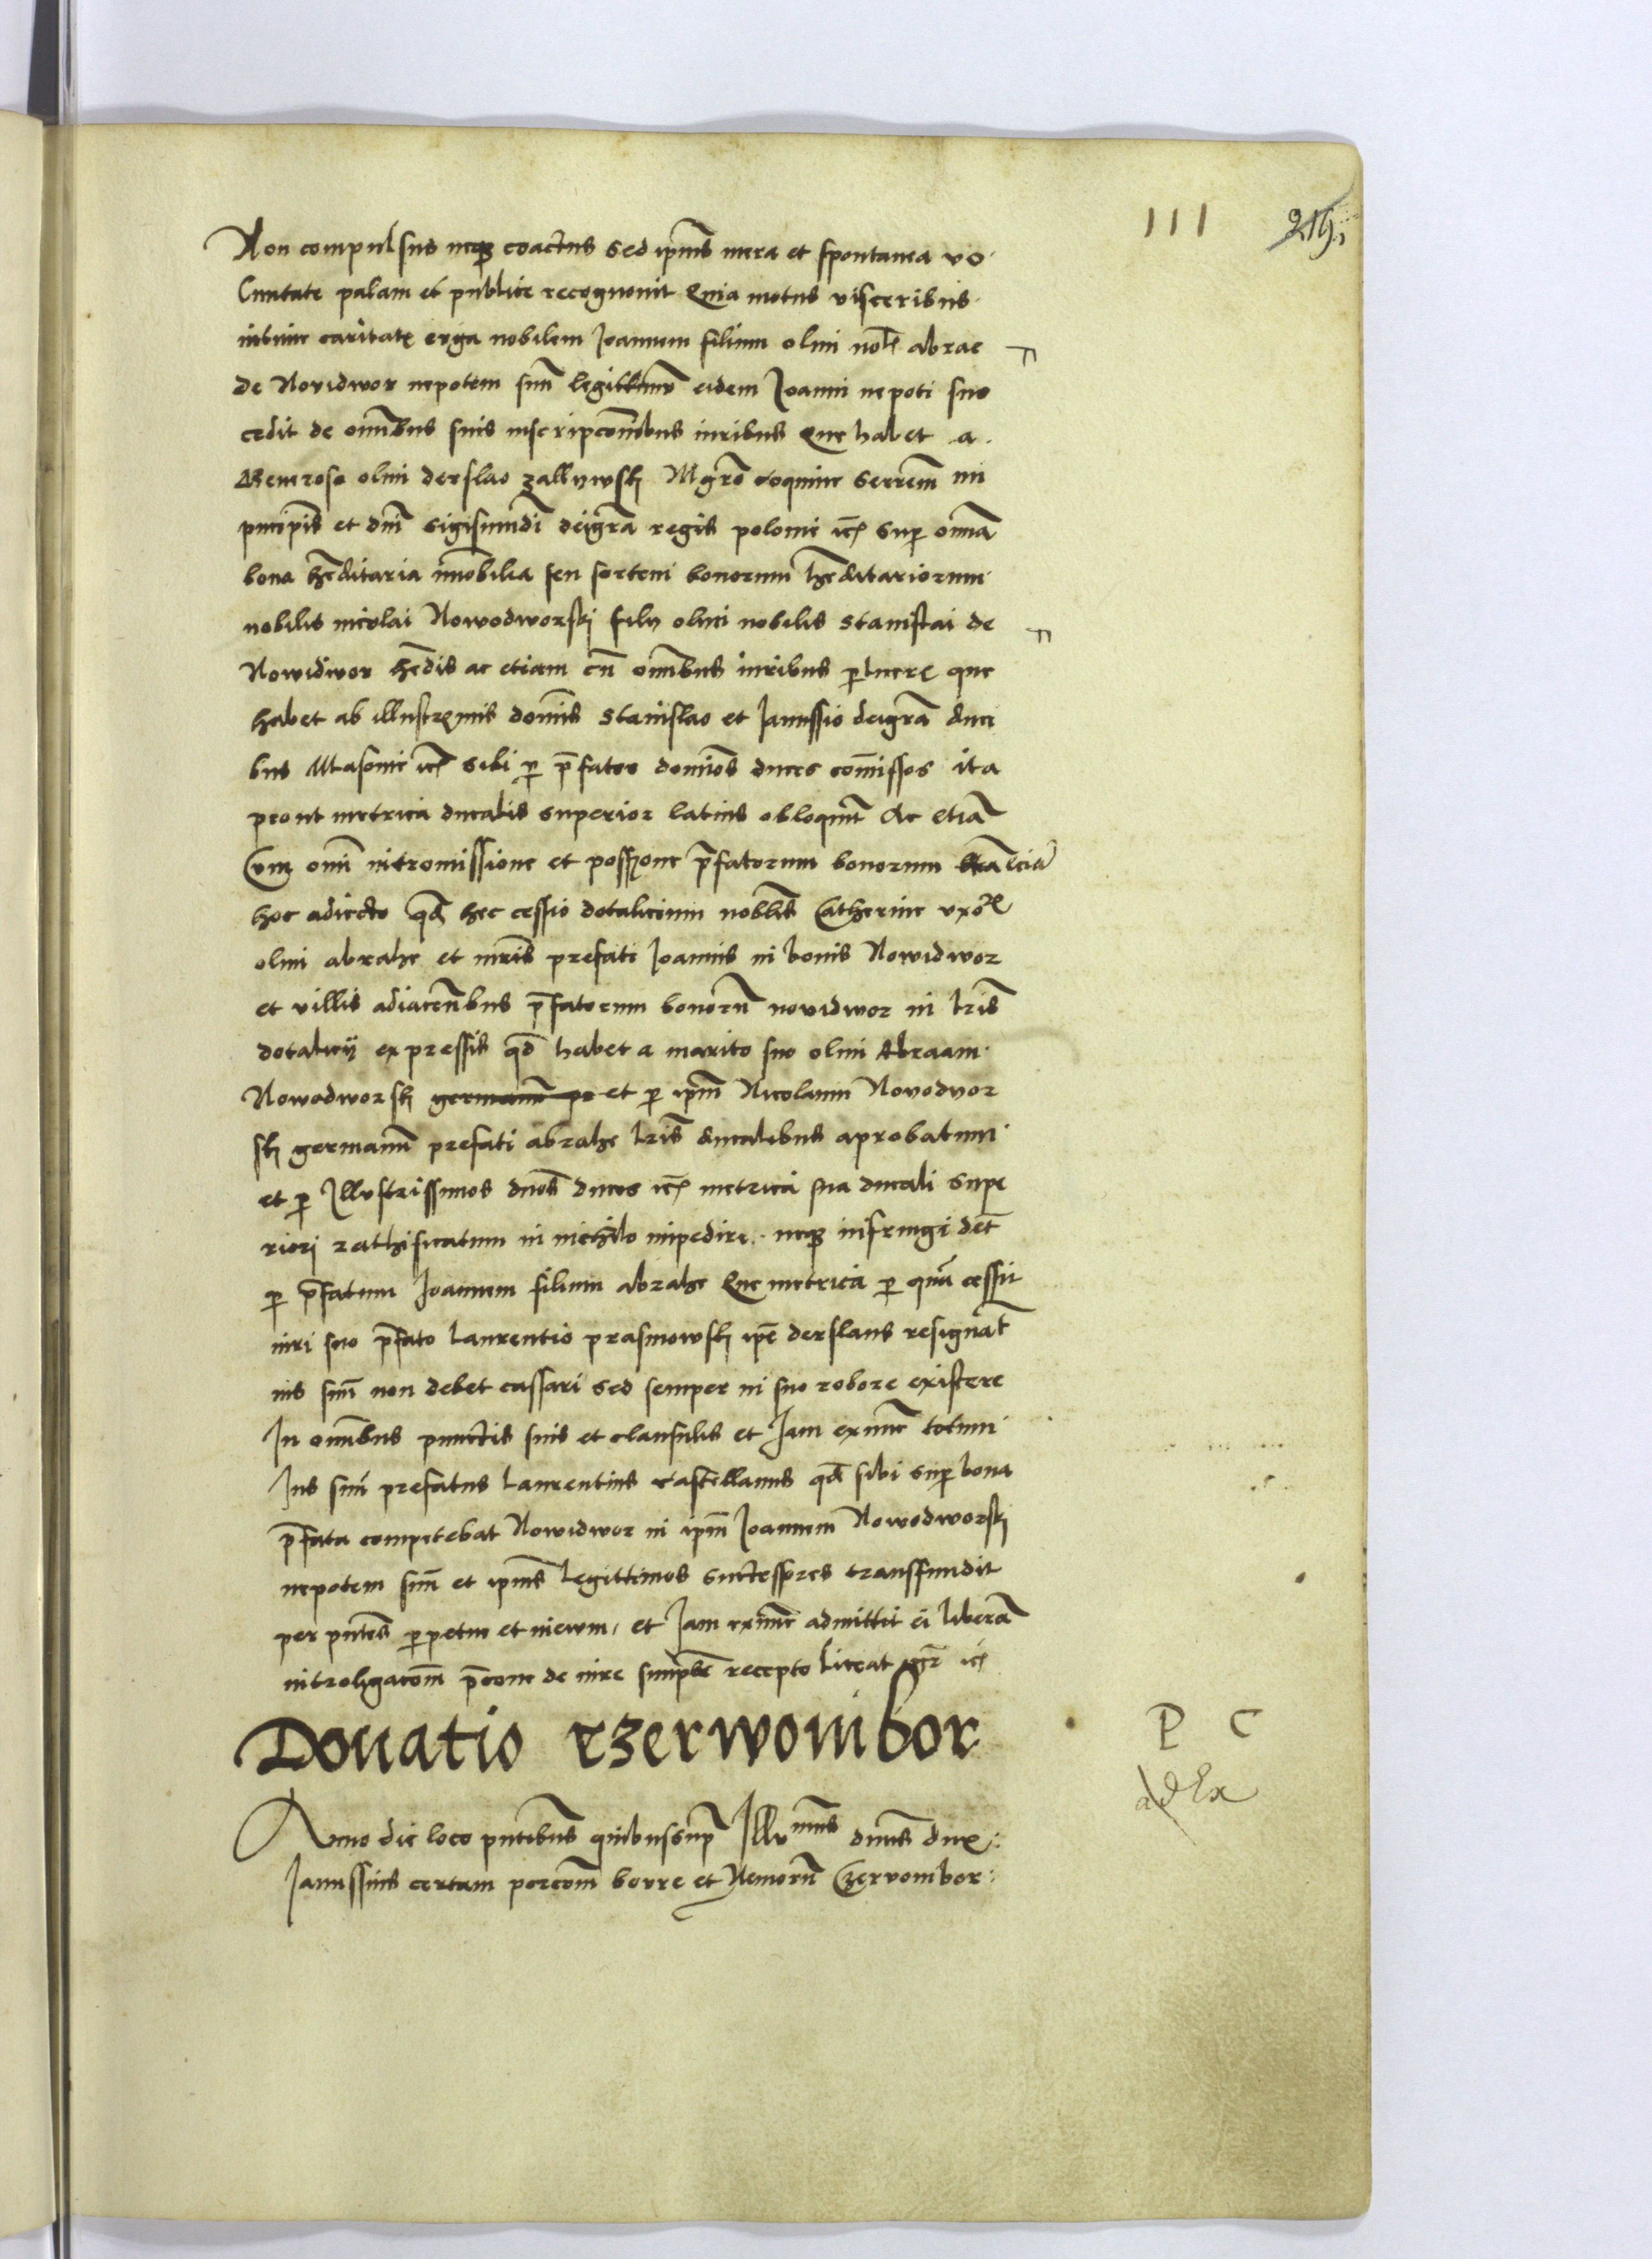 111
Non compulsus neqz coactus sed ipius mera et spontanea vo
luntate palam et publice recognovit Quia motus visceribus
intime caritatis erga nobilem Joannem filium olim nobł abrae
de Novidwor nepotem suū legittimū eidem Joanni nepoti suo
cedit de omībus suis inscripcoībus iuribus que habet a
Generoso olim derslao zallywskj Mgro coquine Serem̄i
principis et dnī Sigismundi deigrā regis polonie etc super omīa
bona hēditaria īmobilia seu sortem bonorum hēditariorum
nobilis nicolai Nowodworskj filij olim nobilis Stanislai de
Nowidwor hēdis ac etiam cū omībus iuribus que
habet ab illustrimis dominis Stanislao et Janussio deigrā duci
bus Masovie etc sibi per p̄fatos dominos duces comissos ita
prout metrica ducalis superior latius obloquit Ac etiā
Cum omī intromissione et possione p̄fatorum bonorum
hoc adiecto qđ hec cessio dotalicium nobilis Catherine uxoris
olim abrahe et mris prefati Joannis in bonis Nowidwor
et villis adiacētibus p̄fatorum bonorū novidwor in lris
dotalicij expressis qđ habet a marito suo olim Abraam
Nowodworskj germanū et per ipm Nicolaum Novodvor
skj germanū prefati abrahe lris ducalibus aprobatum
et per Illustrissimos dnos duces etc metrica sua ducali supe
riori rathificatum in nichilo impedire neqz infringi debet
per p̄fatum Joannem filium abrahe Que metrica per quā cessit
iuri suo p̄fato Laurentio prasmowskj ipe derslaus resignat
ius suū non debet cassari sed semper in suo robore existere
In omībus punctis suis et clausulis et Jam exnunc totum
Jus suū prefatus Laurentius castellanus qđ sibi super bona
p̄fata competebat Nowidwor in ipm Joannem Nowodworskj
nepotem suū et ipius legittimos successores transfundit
per pntes perpetue et in ewm, et Jam exnunc admittit ei liberā
introligacom p̄cone de iure simplr recepto liceat etc
Donatio czerwonibor
P C
ad Ex
Anno die loco pntibus quibussup Illumus dnus dux
Janussius certam porcom borre et Nemorū Czervonibor